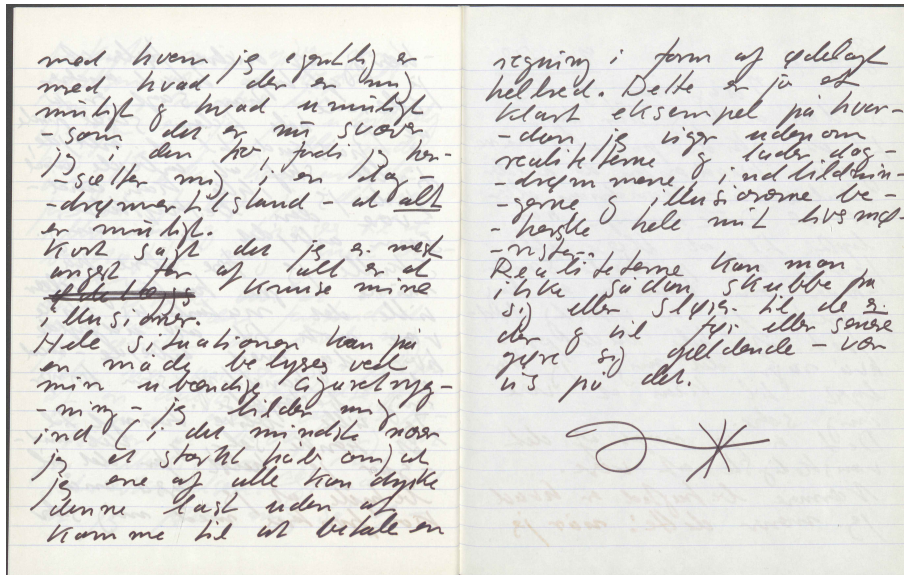 med hvem jeg egentlig er
med hvad der er mig
muligt og hvad umuligt
- som det er nu svæver
jeg i den tro, fordi jeg hen-
-sætter mig i en dag-
-drømmertilstand - at alt
er muligt.
Kort sagt det jeg er mest
angst for af alt er at
knuse mine
illusioner.
Hele situationen kan på
en måde belyses ved
min ubændige cigaretryg-
-ning - jeg bilder mig
ind (i det mindste nærer
jeg et stærkt håb om) at
jeg ene af alle kan dyrke
denne last uden at
komme til at betale en
regning i form af ødelagt
helbred. Dette er jo et
klart eksempel på hvor-
-dan jeg viger udenom
realiteterne og lader dag-
-drømmene indbildnin-
-gerne og illusionerne be-
-herske hele mit livsmø-
-nster.
Realiteterne kan man
ikke sådan skubbe fra
sig eller sløje. til de
der og vil før eller senere
gøre sig gældende - vær
vis på det.